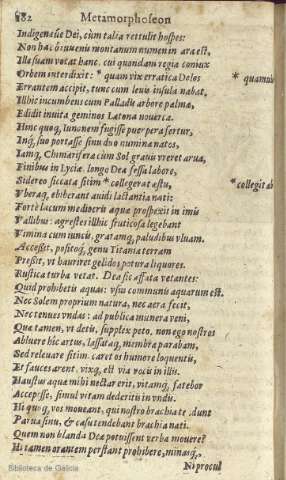 182 Metamorphoseon
Indigenasúe Dei, cùm talia rettulit hospes:
Non hac ô iuuenis montanum numen in ara est,
Illa suam vocat hanc, cui quondam regia coniux
Orbem interdixit: * quam vix erratica Delos * quamuis
Errantem accipit, tunc cum leuis insula nabat,
Illhic incumbens cum Palladis arbore palmæ,
Edidit inuita geminos Latona nouerca.
Hinc quoq; Iunonem fugisse puerpera fertur,
Inq́; suo portasse sinu duo numina natos,
Iamq́; Chimæriferæ cum Sol grauis vreret arua,
Finibus in Lyciæ longo Dea fessa labore,
Sidereo siccata sitim * collegerat æstu, * collegit ab
Vberaq́; ebiberant auidi lactantia nati:
Fortè lacum mediocris aquæ prospexit in imis
Vallibus: agrestes illhic fruticosa legebant
Vimina cum iuncis, gratamq́; paludibus vluam.
Accessit, positoq́; genu Titania terram
Pressit, vt hauriret gelidos potura liquores.
Rustica turba vetat. Dea sic affata vetantes:
Quid prohibetis aquas? vsus communis aquarum est.
Nec Solem proprium natura, nec aëra fecit,
Nec tenues vndas: ad publica munera veni,
Quæ tamen, vt detis, supplex peto, non ego nostros
Abluere hic artus, lassataq́; membra parabam,
Sed releuare sitim. caret os humore loquentis,
Et fauces arent. vixq́; est via vocis in illis.
Haustus aquæ mihi nectar erit, vitamq́; fatebor
Accepisse, simul vitam dederitis in vndis.
Hi quoq́; vos moueant, qui nostro brachia tendunt
Parua sinu, & casu tendebant brachia nati.
Quem non blanda Deæ potuissent verba mouere?
Hi tamen orantem perstant prohibere, minasq́;
Ni procul
Biblioteca de Galicia